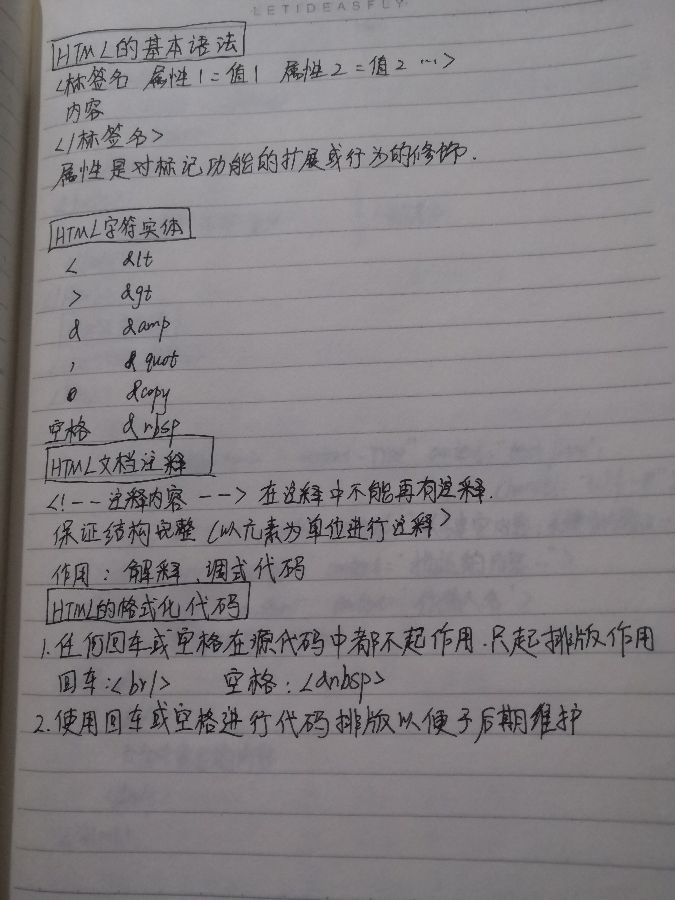 LETIDEASFLY
HTML的基本语法
<标签名 属性1=值1 属性2=值2 …>
内容
</标签名>
属性是对标记功能的扩展或行为的修饰.
HTML字符实体
< &lt
> &gt
& &amp
, &quot
&copy
空格 &nbsp
HTML文档注释
<!-- 注释内容 --> 在注释中不能再有注释.
保证结构完整(以元素为单位进行注释>
作用: 解释、调式代码
HTML的格式化代码
1.任何回车或空格在源代码中都不起作用.只起排版作用
回车:<br/> 空格:<&nbsp>
2.使用回车或空格进行代码排版以便于后期维护